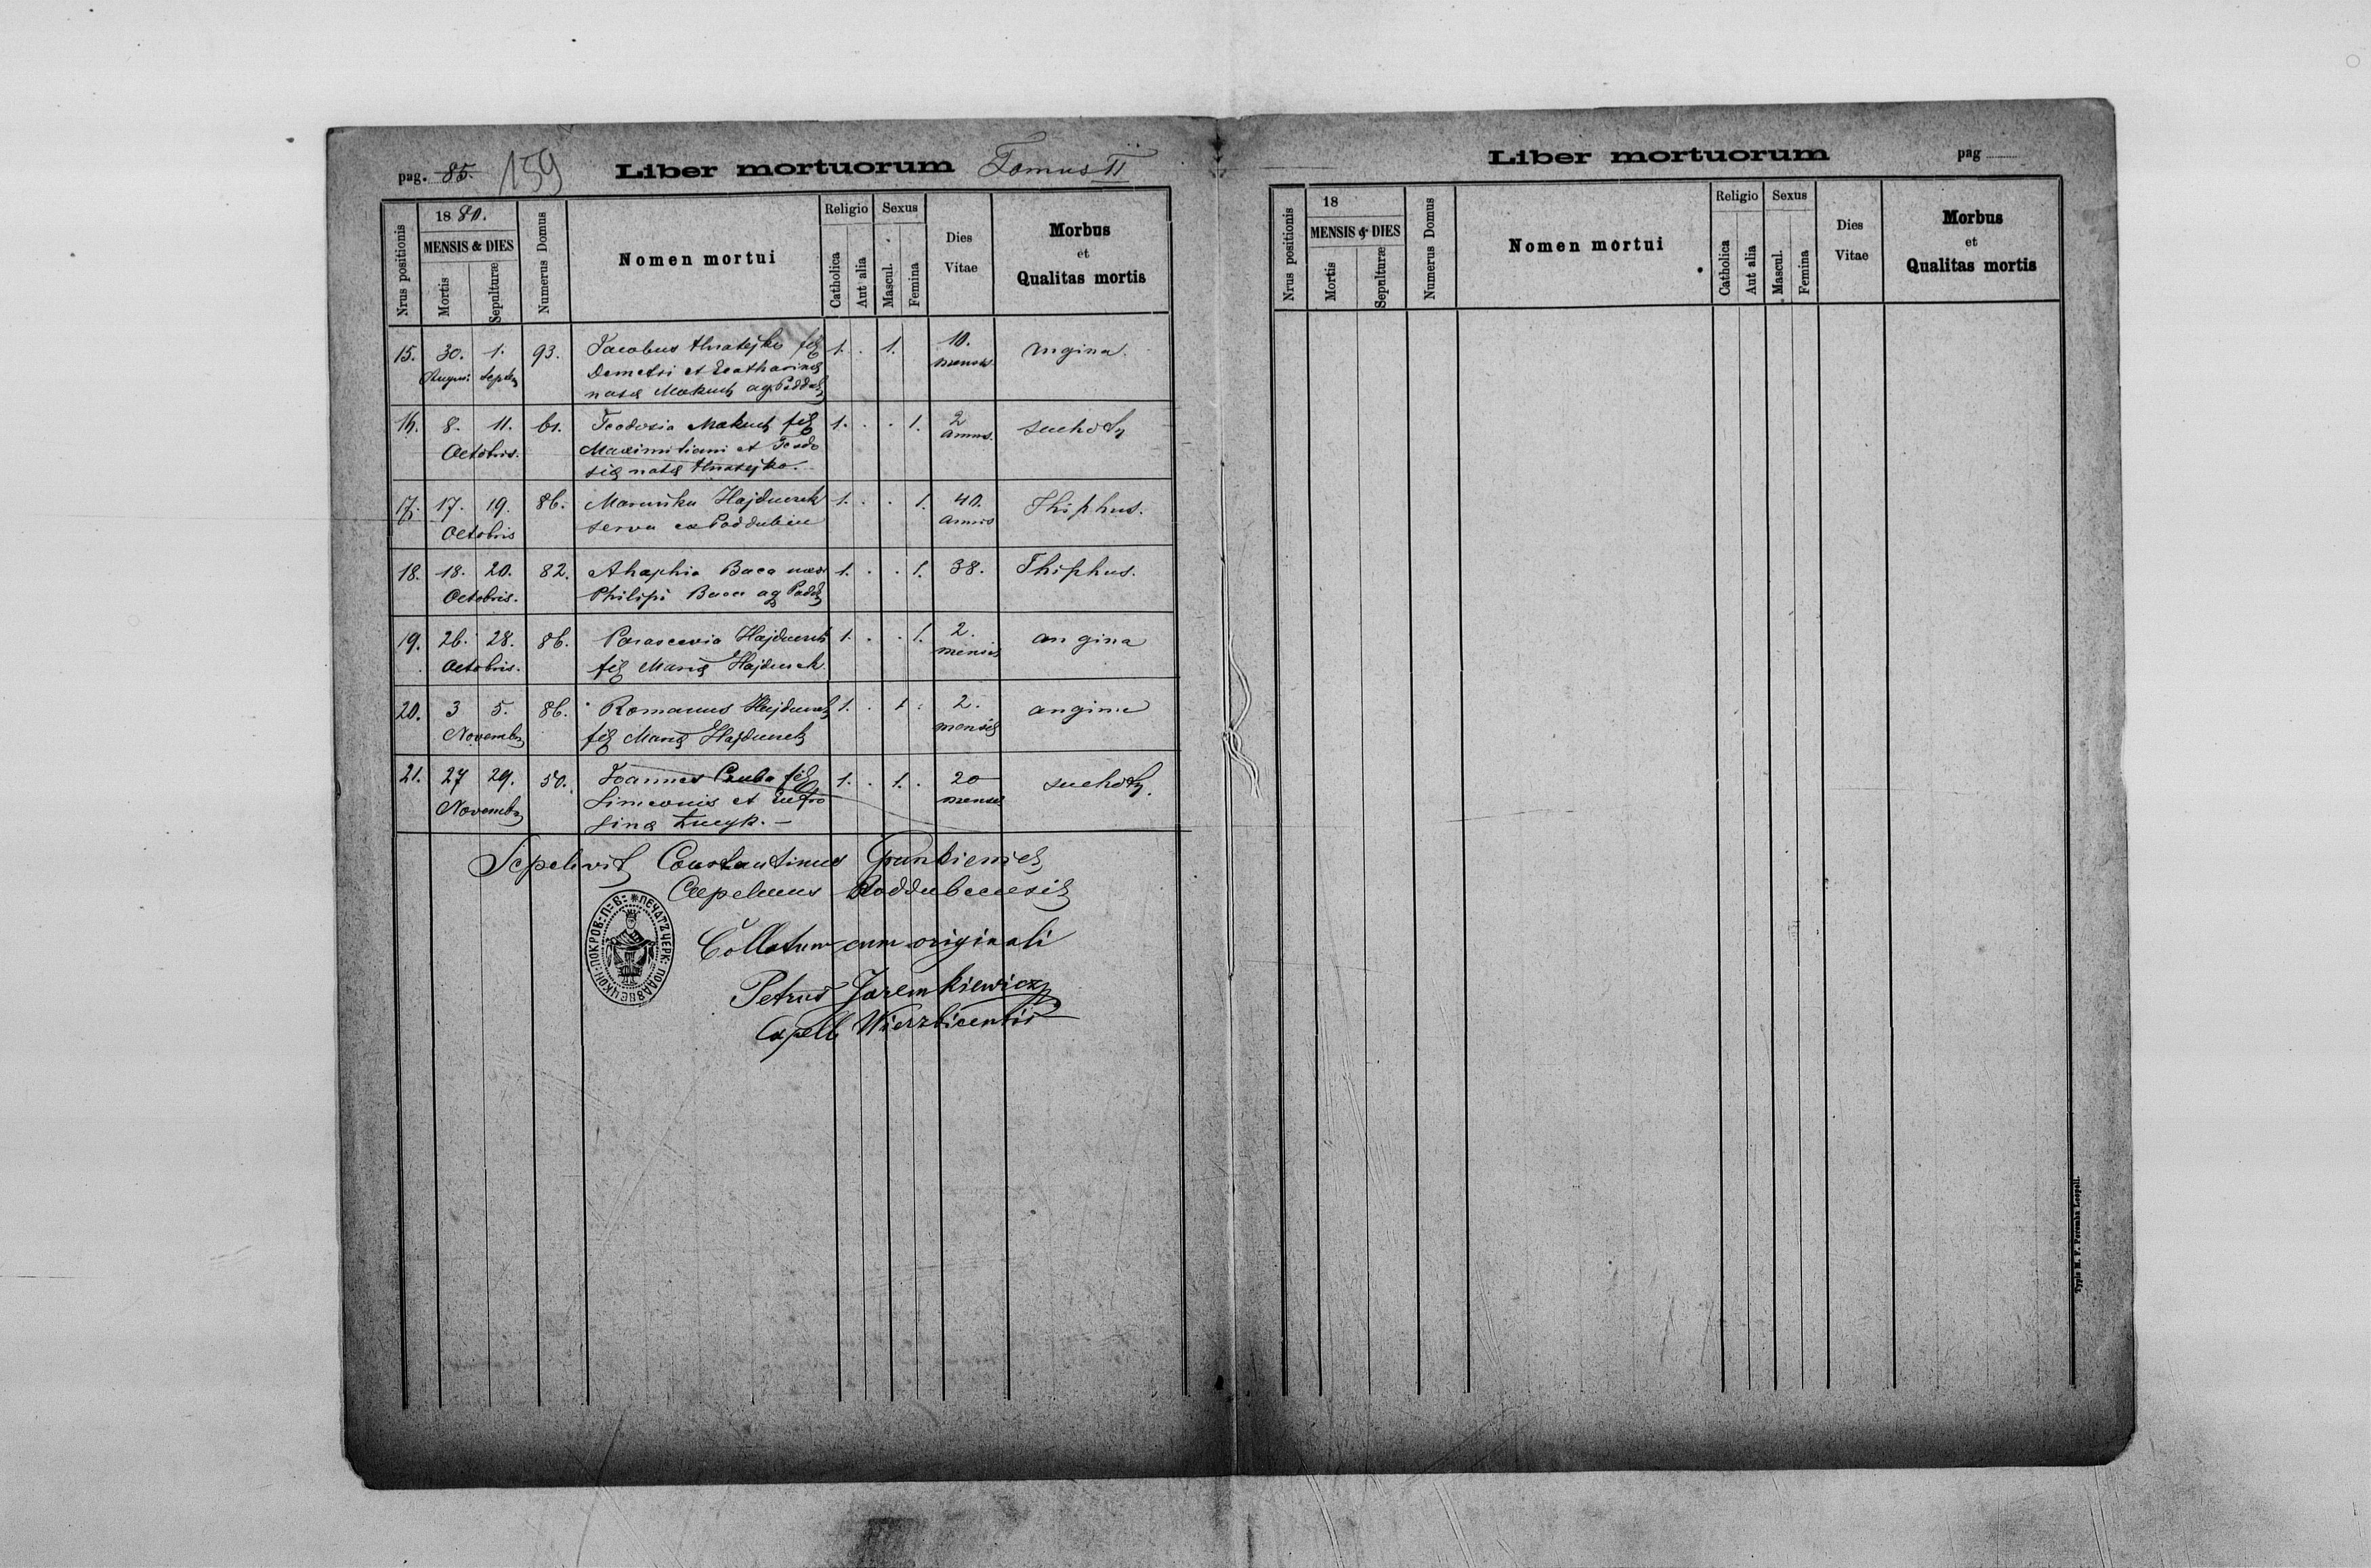 pag. 85. 159 Liber mortuorum Tomus II
Nrus positionis
1880.
MENSIS & DIES
Mortis
Sepulturæ
Numerus Domus
Nomen mortui
Religio
Catholica
Aut alia
Sexus
Mascul.
Femina
Dies
Vitae
Morbus
et
Qualitas mortis
15. 30. 1. 93. Jacobus Hnatejko fil 1. . 1. 10. angina.
August Septb Demetri et Catharina mensis
nata Makuch ag Poddub
16. 8. 11. 61. Teodosia Makuch fil 1. . . 1. 2 suchoty
Octobris. Maximiliani et Teodo annis.
sia nata Hnatejko.
17. 17. 19. 86. Marunka Hajduczek 1. . . 1. 40. Thiphus.
Octobris serva ex Poddubiec annis
18. 18. 20. 82. Ahaphia Baca uxor 1. . . 1. 38. Thiphus.
Octobris. Philipi Baca ag Podd
19. 26. 28. 86. Parascevia Hajduczek 1. . . 1. 2. angina
Octobris. fil Maria Hajduczek mensis
20. 3 5. 86. Romanus Hajduczek 1. . 1 . 2. angina
Novemb fil Maria Hajduczek mensis
21. 27 29. 50. Joannes Czuba fil 1. . 1. . 20 suchoty.
Novemb Simeonis et Eufro mensis
sina
Sepelivit Constantinus
Capelanus Poddubecensis
Collatum cum originali
Petrus Jaremkiewicz
Capell Wierzbicensis
Liber mortuorum pag
Nrus positionis
18
MENSIS & DIES
Mortis
Sepulturæ
Numerus Domus
Nomen mortui
Religio
Catholica
Aut alia
Sexus
Mascul.
Femina
Dies
Vitae
Morbus
et
Qualitas mortis
Typis M. F. Poremba Leopoli.